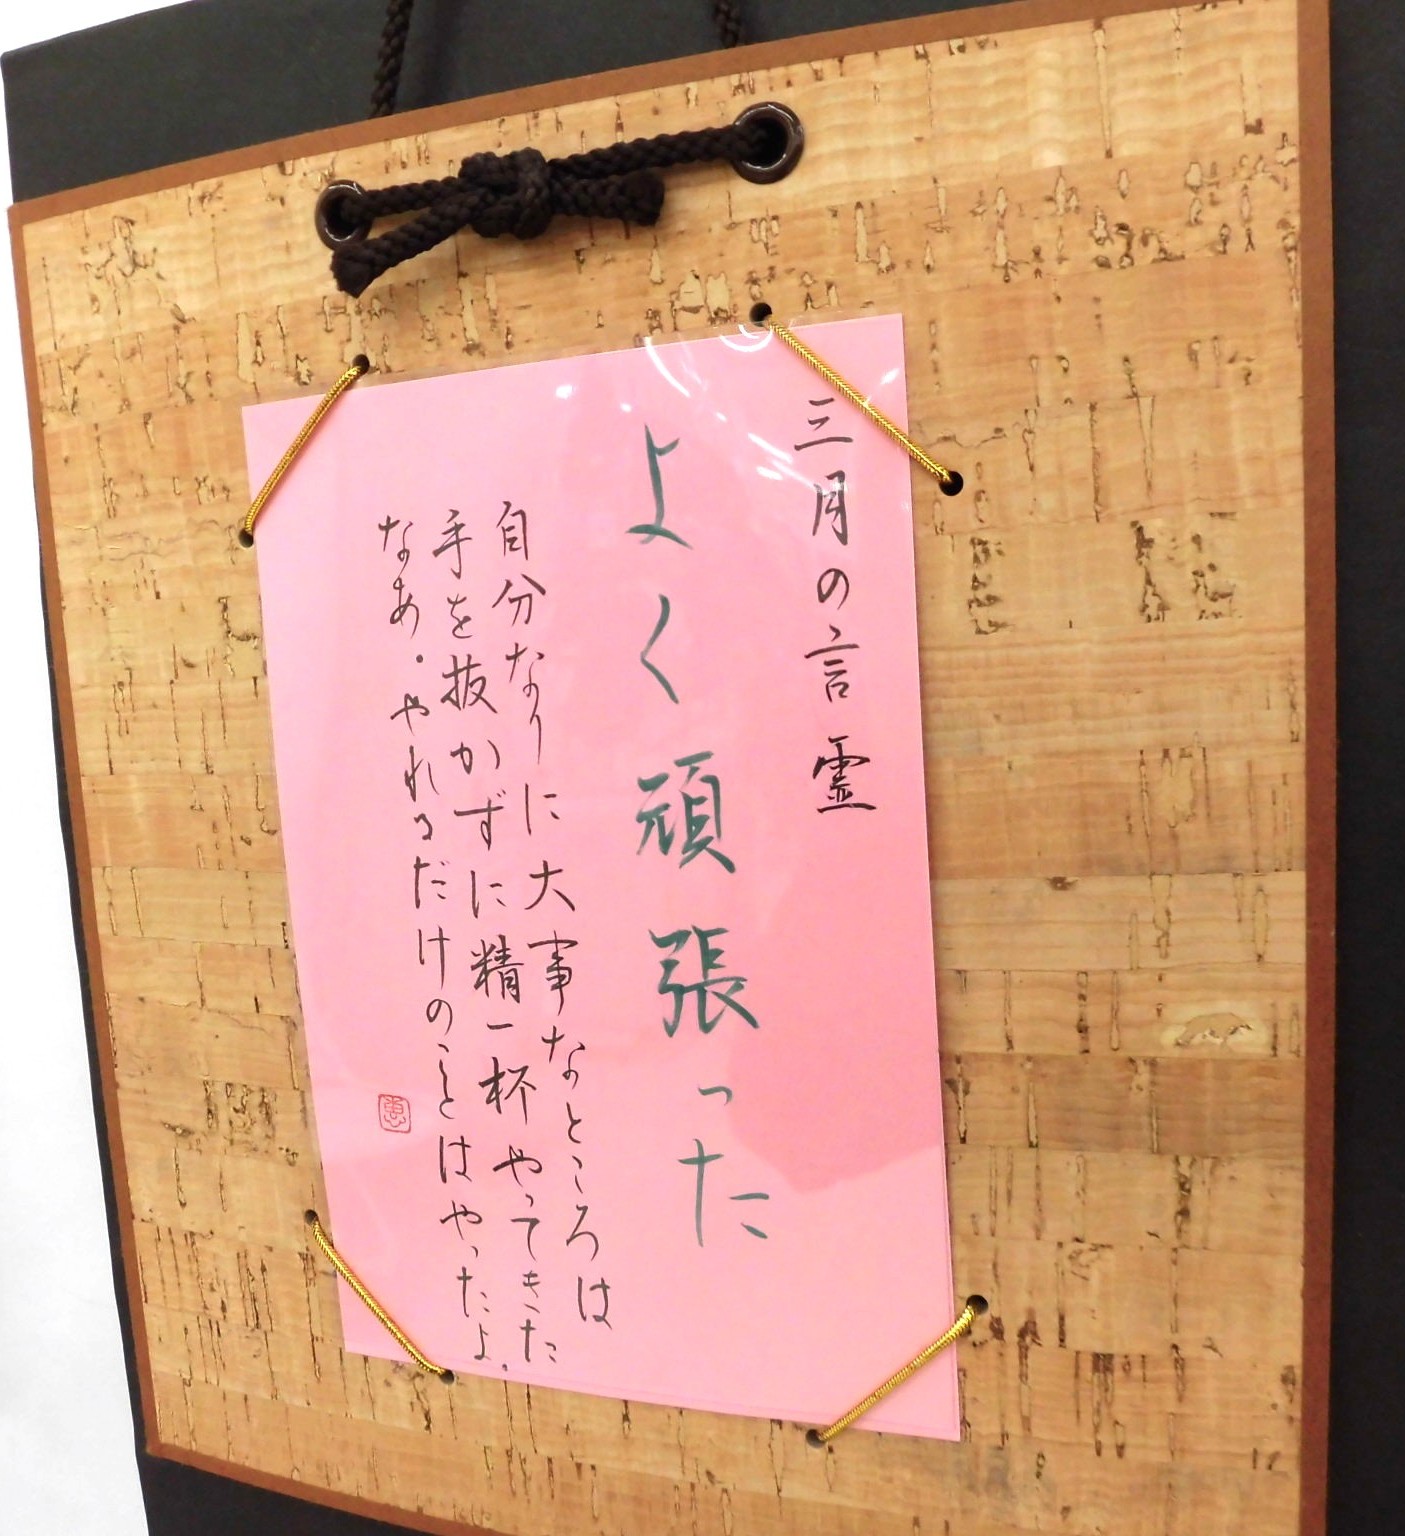 三月の言霊
よく頑張った
自分なりに大事なところは
手を抜かずに精一杯やってきた
なあ・やれるだけのことはやったよ.
恵